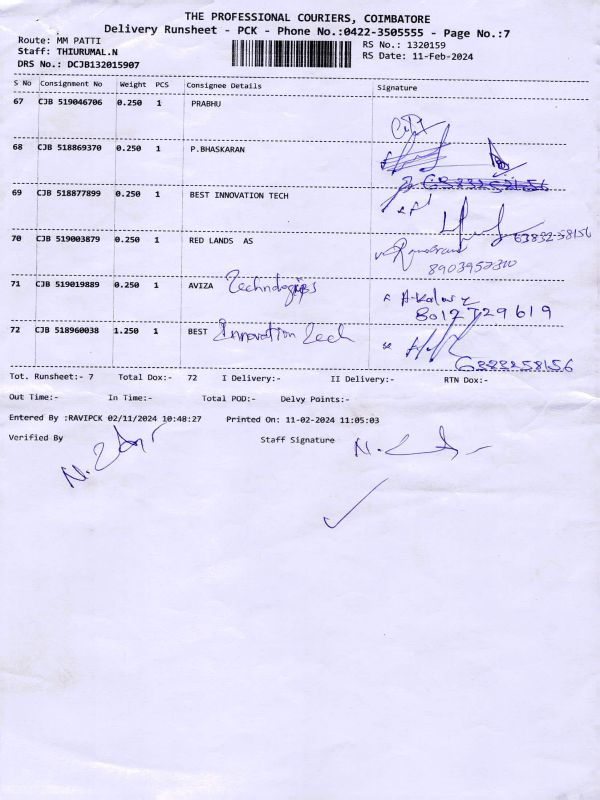 THE PROFESSIONAL COURIERS, COIMBATORE
Delivery Runsheet - PCK - Phone No.:0422-3505555 - Page No.:7
Route: MM PATTI
RS No.: 1320159
Staff: THIURUMAL.N
RS Date: 11-Feb-2024
DRS No.: DCJB132015907
S No Consignment No Weight PCS Consignee Details Signature
67 CJB 519046706 0.250 1 PRABHU
68 CJB 518869370 0.250 1 P.BHASKARAN
69 CJB 518877899 0.250 1 BEST INNOVATION TECH
63832-58156
70 CJB 519003879 0.250 1 RED LANDS AS
8903952310
71 CJB 519019889 0.250 1 AVIZA Technologies
8012729619
72 CJB 518960038 1.250 1 BEST Innovation Tech
6383258156
Tot. Runsheet:- 7 Total Dox:- 72 I Delivery:- II Delivery:- RTN Dox:-
Out Time:- In Time:- Total POD:- Delvy Points:-
Entered By :RAVIPCK 02/11/2024 10:48:27 Printed On: 11-02-2024 11:05:03
Verified By Staff Signature